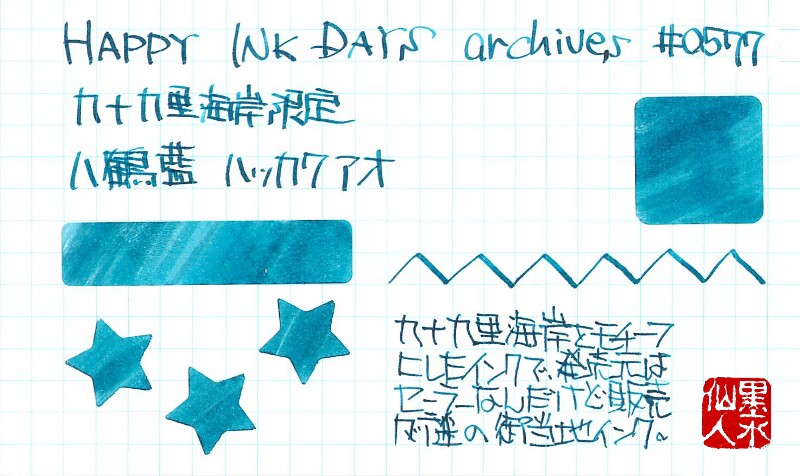 HAPPY INK DAYS archives #0577
九十九里海岸限定
八鶴藍 ハッカクアオ
九十九里海岸をモチーフ
にしたインクで、発売元は
セーラーなんだけど販売
が謎の御当地インク。
墨水
仙人